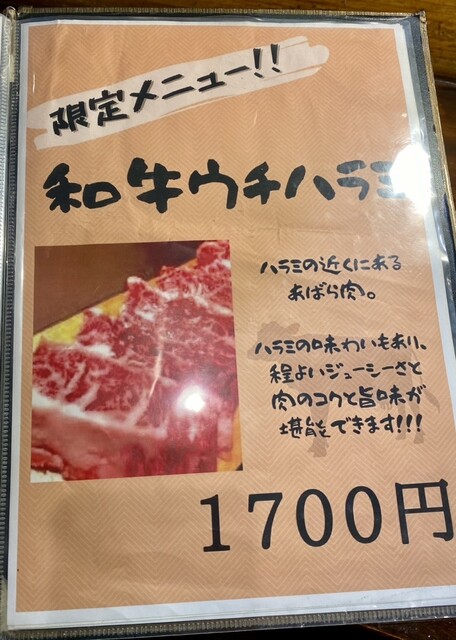 限定メニュー!!
和牛ウチハラミ
ハラミの近くにある
あばら肉。
ハラミの味わいもあり、
程よいジューシーさと
肉のコクと旨味が
堪能できます!!!
1700円